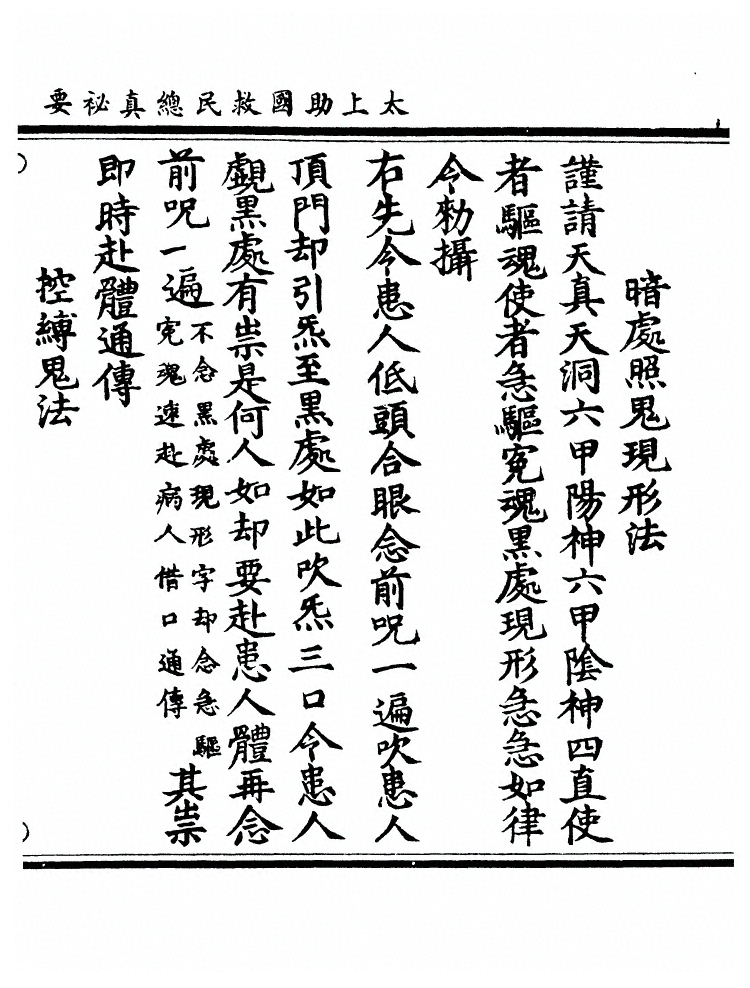 太上助國救民總真祕要
暗處照鬼現形法
謹請天真天洞六甲陽神六甲陰神四直使
者驅魂使者急驅寃魂黑處現形急急如律
令勑攝
右先令患人低頭合眼念前呪一遍吹患人
頂門却引炁至黑處如此吹炁三口令患人
覷黑處有祟是何人如却要赴患人體再念
前呪一遍不念黑處現形字却念急驅寃魂速赴病人借口通傳其祟
即時赴體通傳
控縛鬼法